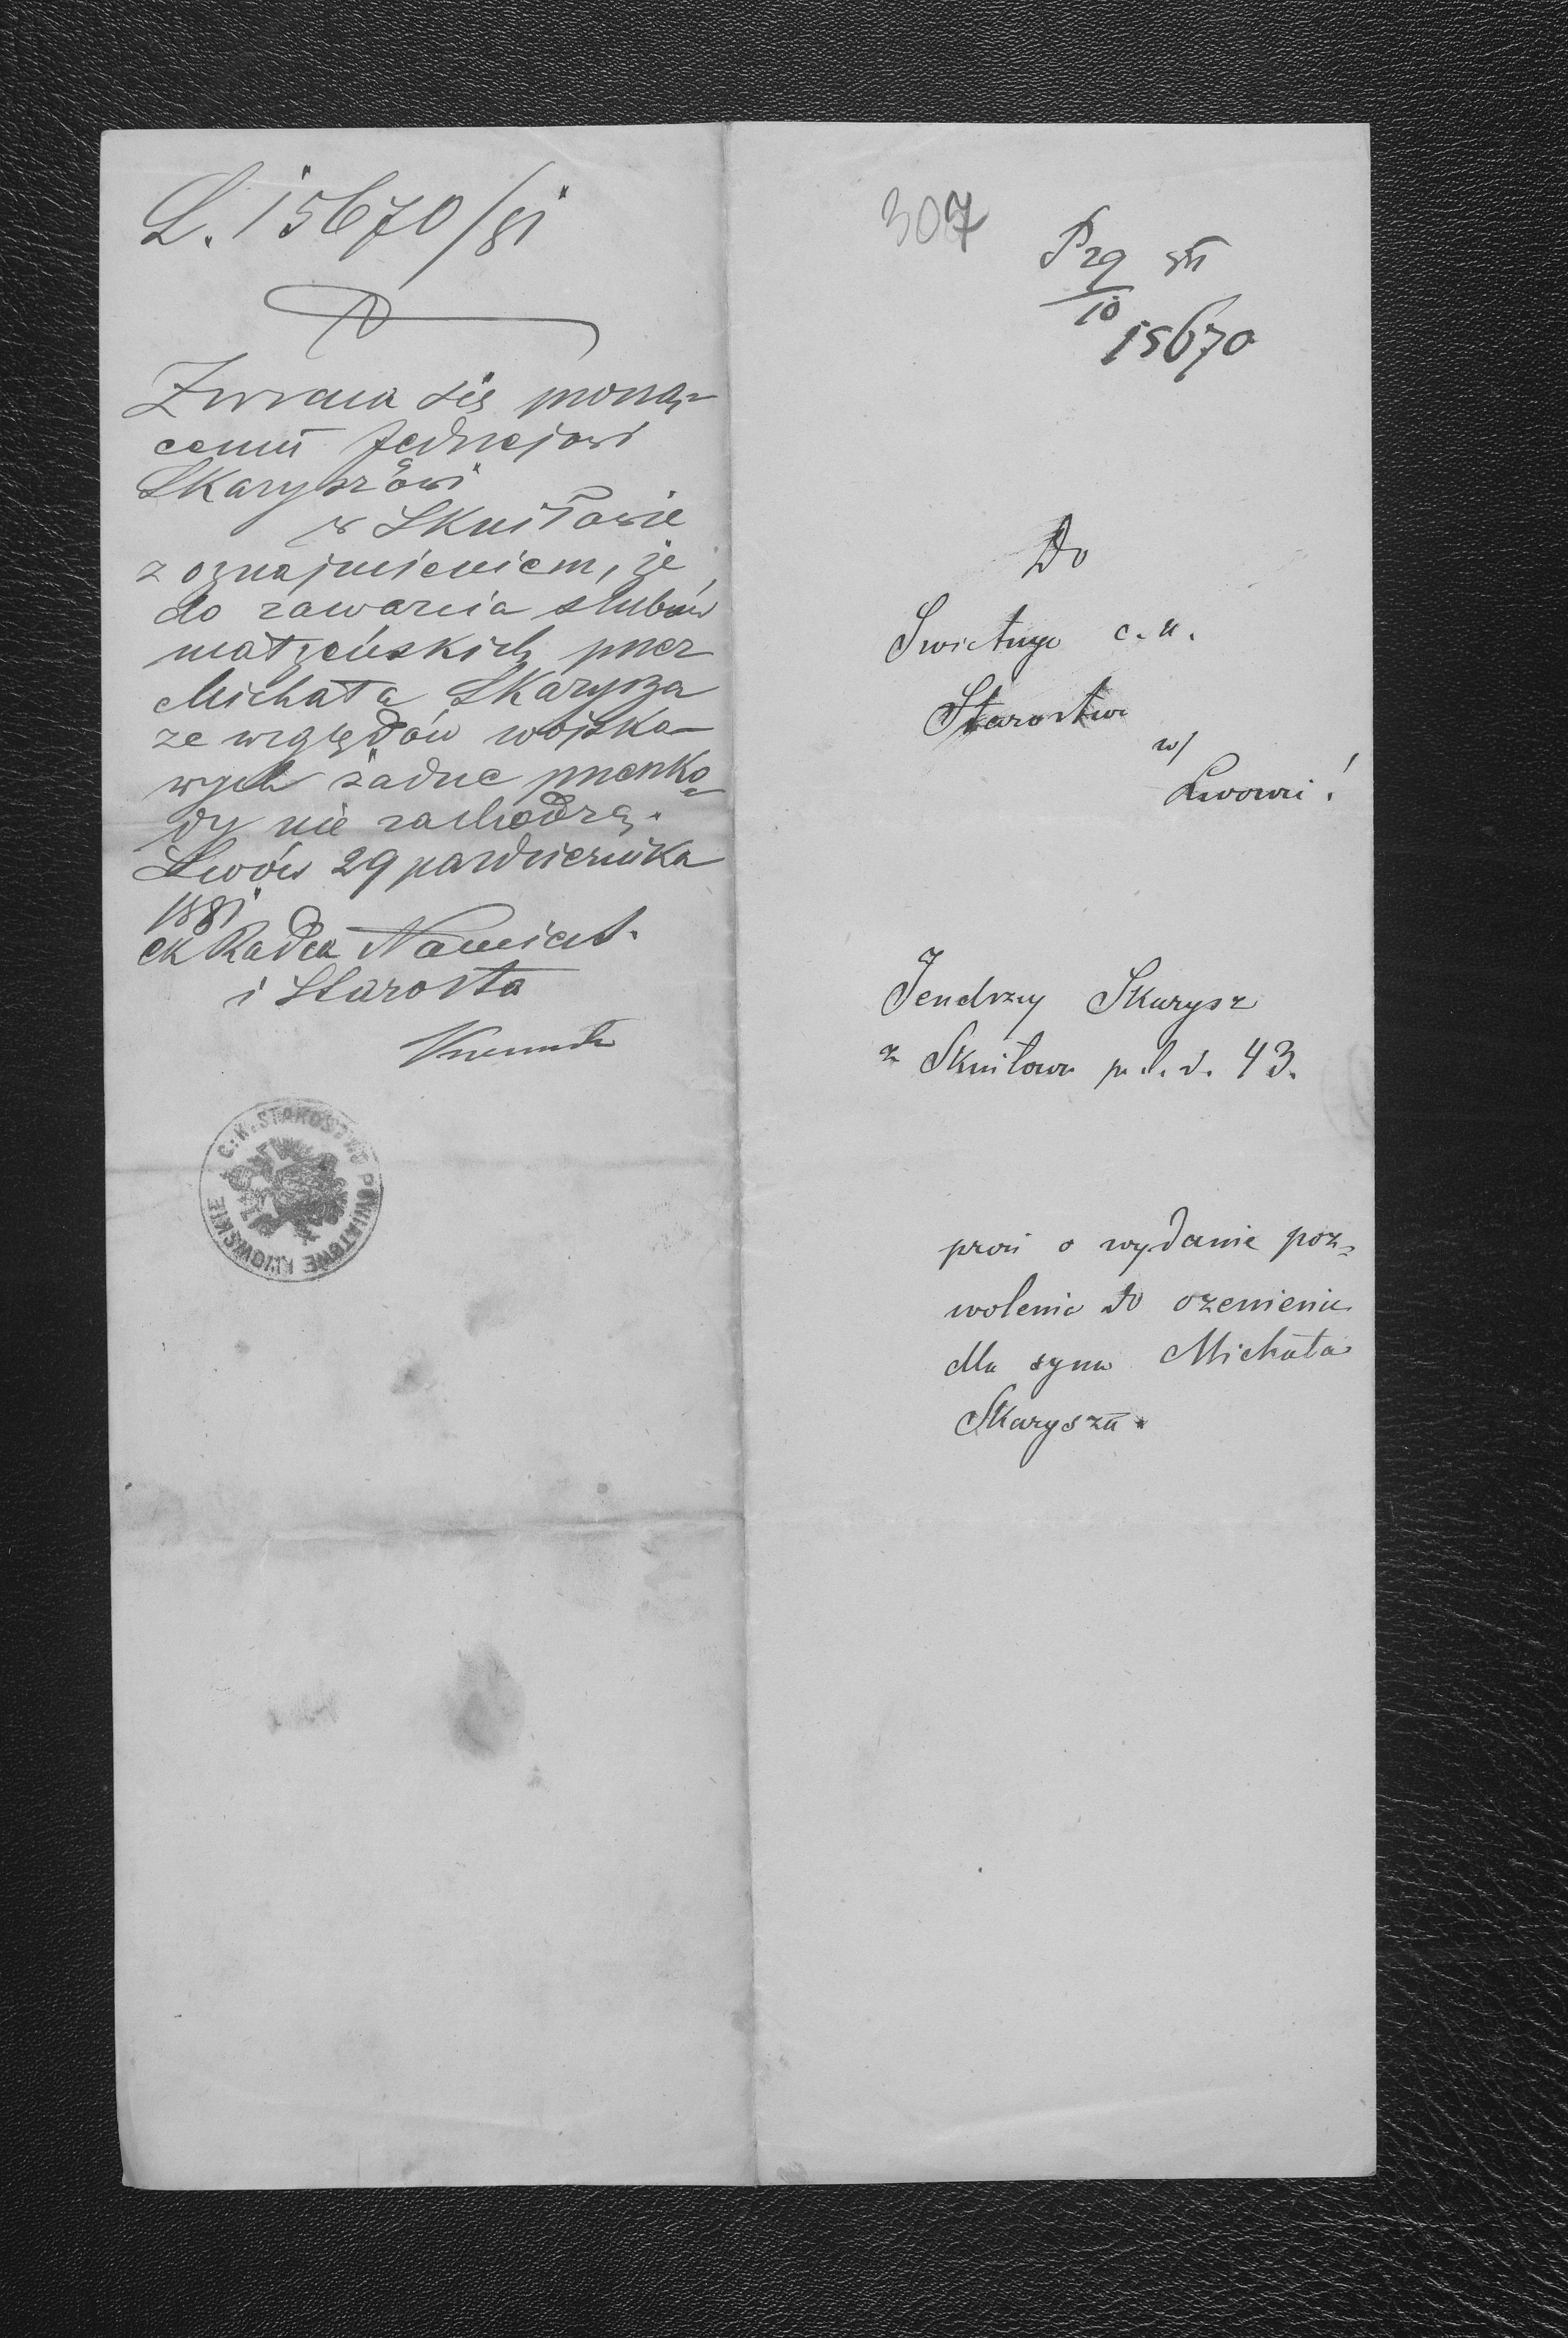 L. 15670/81
Zwraca się proszą-
cemu Jędrzejowi
Skaryszowi
w Skniłowie
z oznajmieniem, że
do zawarcia ślubów
małżeńskich przez
Michała Skarysza
ze względów wojsko-
wych żadne przeszko-
dy nie zachodzą.
Lwów 29 października
1881
ck Radca Namiest.
i Starosta
C.K. STAROSTWO POWIATOWE LWOWSKIE
307
29
10
15670
Do
Swietnego c. k.
Starostwa
w/
Lwowie!
Jendrzey Skarysz
z Skniłowa p. l. d. 43.
prosi o wydanie poz-
wolenie do ozenienia
dla syna Michała
Skarysza.